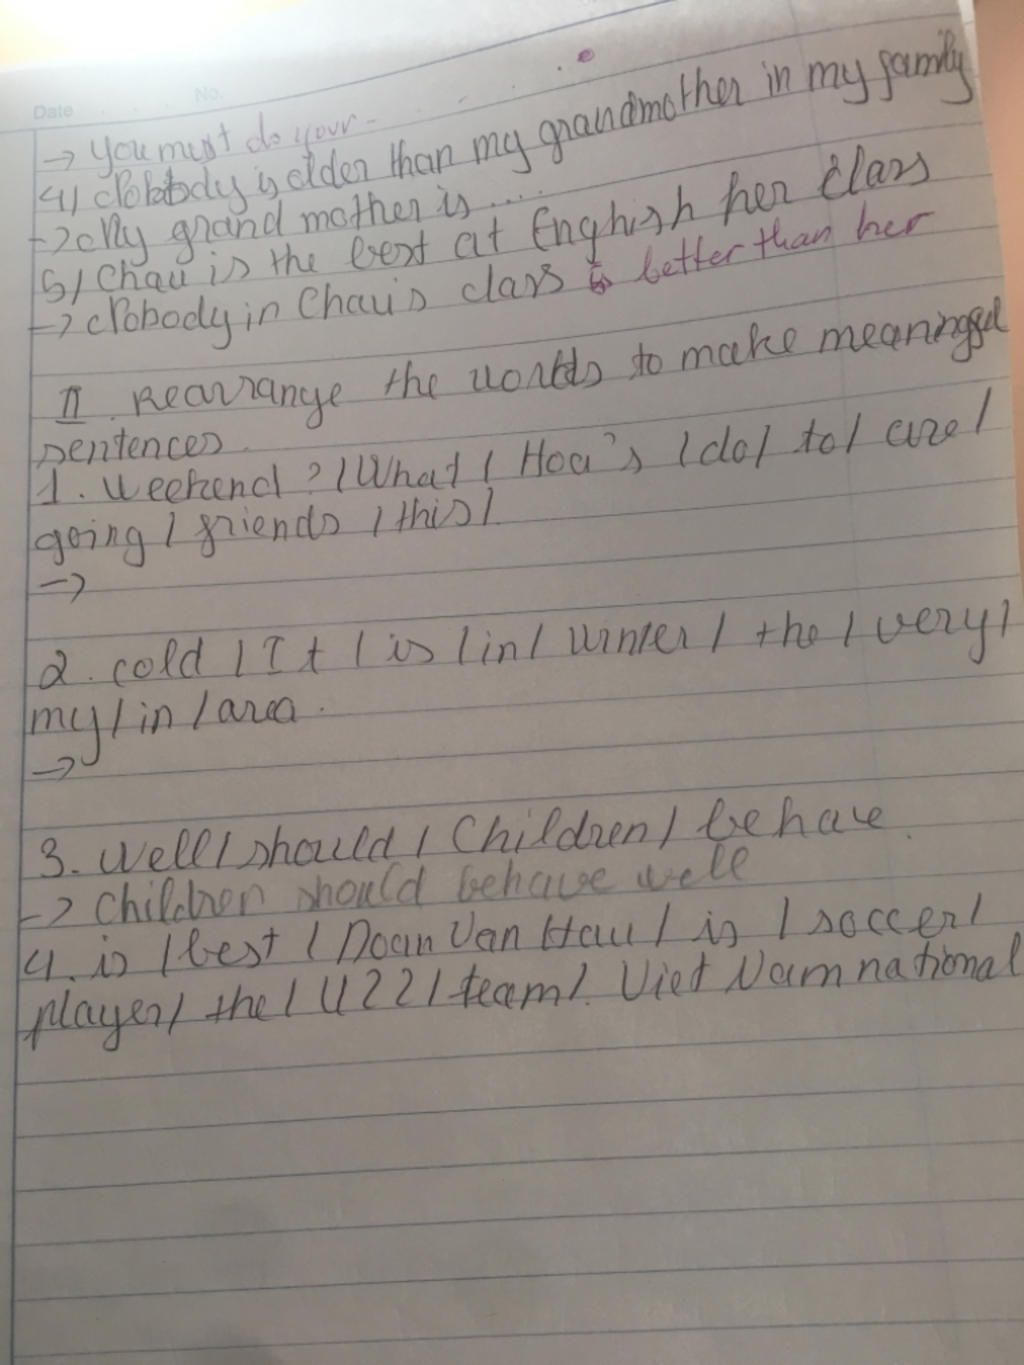 Date No.
→ You must do your -
4) Nobody is older than my grandmother in my family
→ My grand mother is ...
5) Chau is the best at Enghish her class
→ Nobody in Chau's class is better than her
II. Rearrange the words to make meaningful
sentences.
1. Weekend ? / What / Hoa's / do / to / are /
going / friends / this /.
→
2. cold / It / is / in / winter / the / very /
my / in / area.
→
3. Well / should / Children / behave.
→ Children should behave well
4. is / best / Doan Van Hau / is / soccer /
player / the / U22 / team /. Viet Nam national